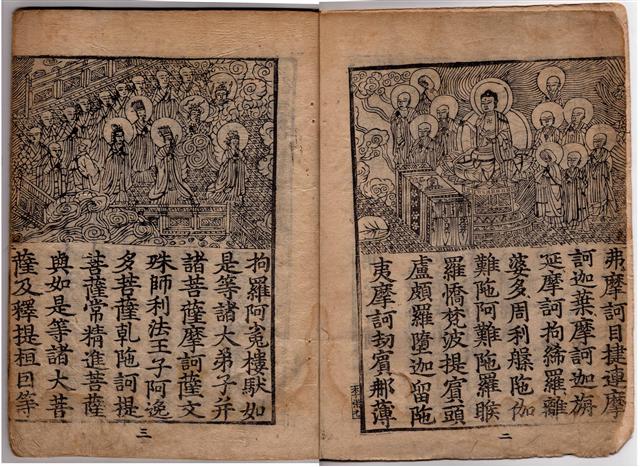 弗摩訶目揵連摩
訶迦葉摩訶迦旃
延摩訶拘絺羅離
婆多周利槃陁伽
難陁阿難陁羅睺
羅憍梵波提賓頭
盧頗羅墮迦留陁
夷摩訶刧賓那薄
二
拘羅阿㝹樓馱如
是等諸大弟子并
諸菩薩摩訶薩文
殊師利法王子阿逸
多菩薩乾陁訶提
菩薩常精進菩薩
與如是等諸大菩
薩及釋提桓因等
三